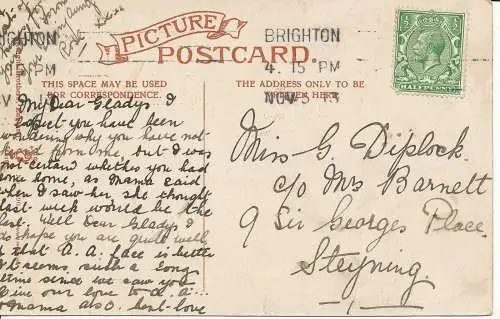 PICTURE
POSTCARD.
BRIGHTON
4. 15 PM
NOV 5 13
HALFPENNY
THIS SPACE MAY BE USED
FOR CORRESPONDENCE.
THE ADDRESS ONLY TO BE
WRITTEN HERE.
My Dear Gladys I
expect you have been
wondering why you have not
heard from me, but I was
not certain whither you had
come home, as Mama said
when I saw her, she thought
last week would be the
last. Well Dear Gladys I
do hope you are quite well
& that A. A. face is better
It seems such a long
time since we saw you
Give our love to A. A...
& Mama also. best love
Miss G. Diplock.
c/o Mrs Barnett
9 Sir Georges Place
Steyning.